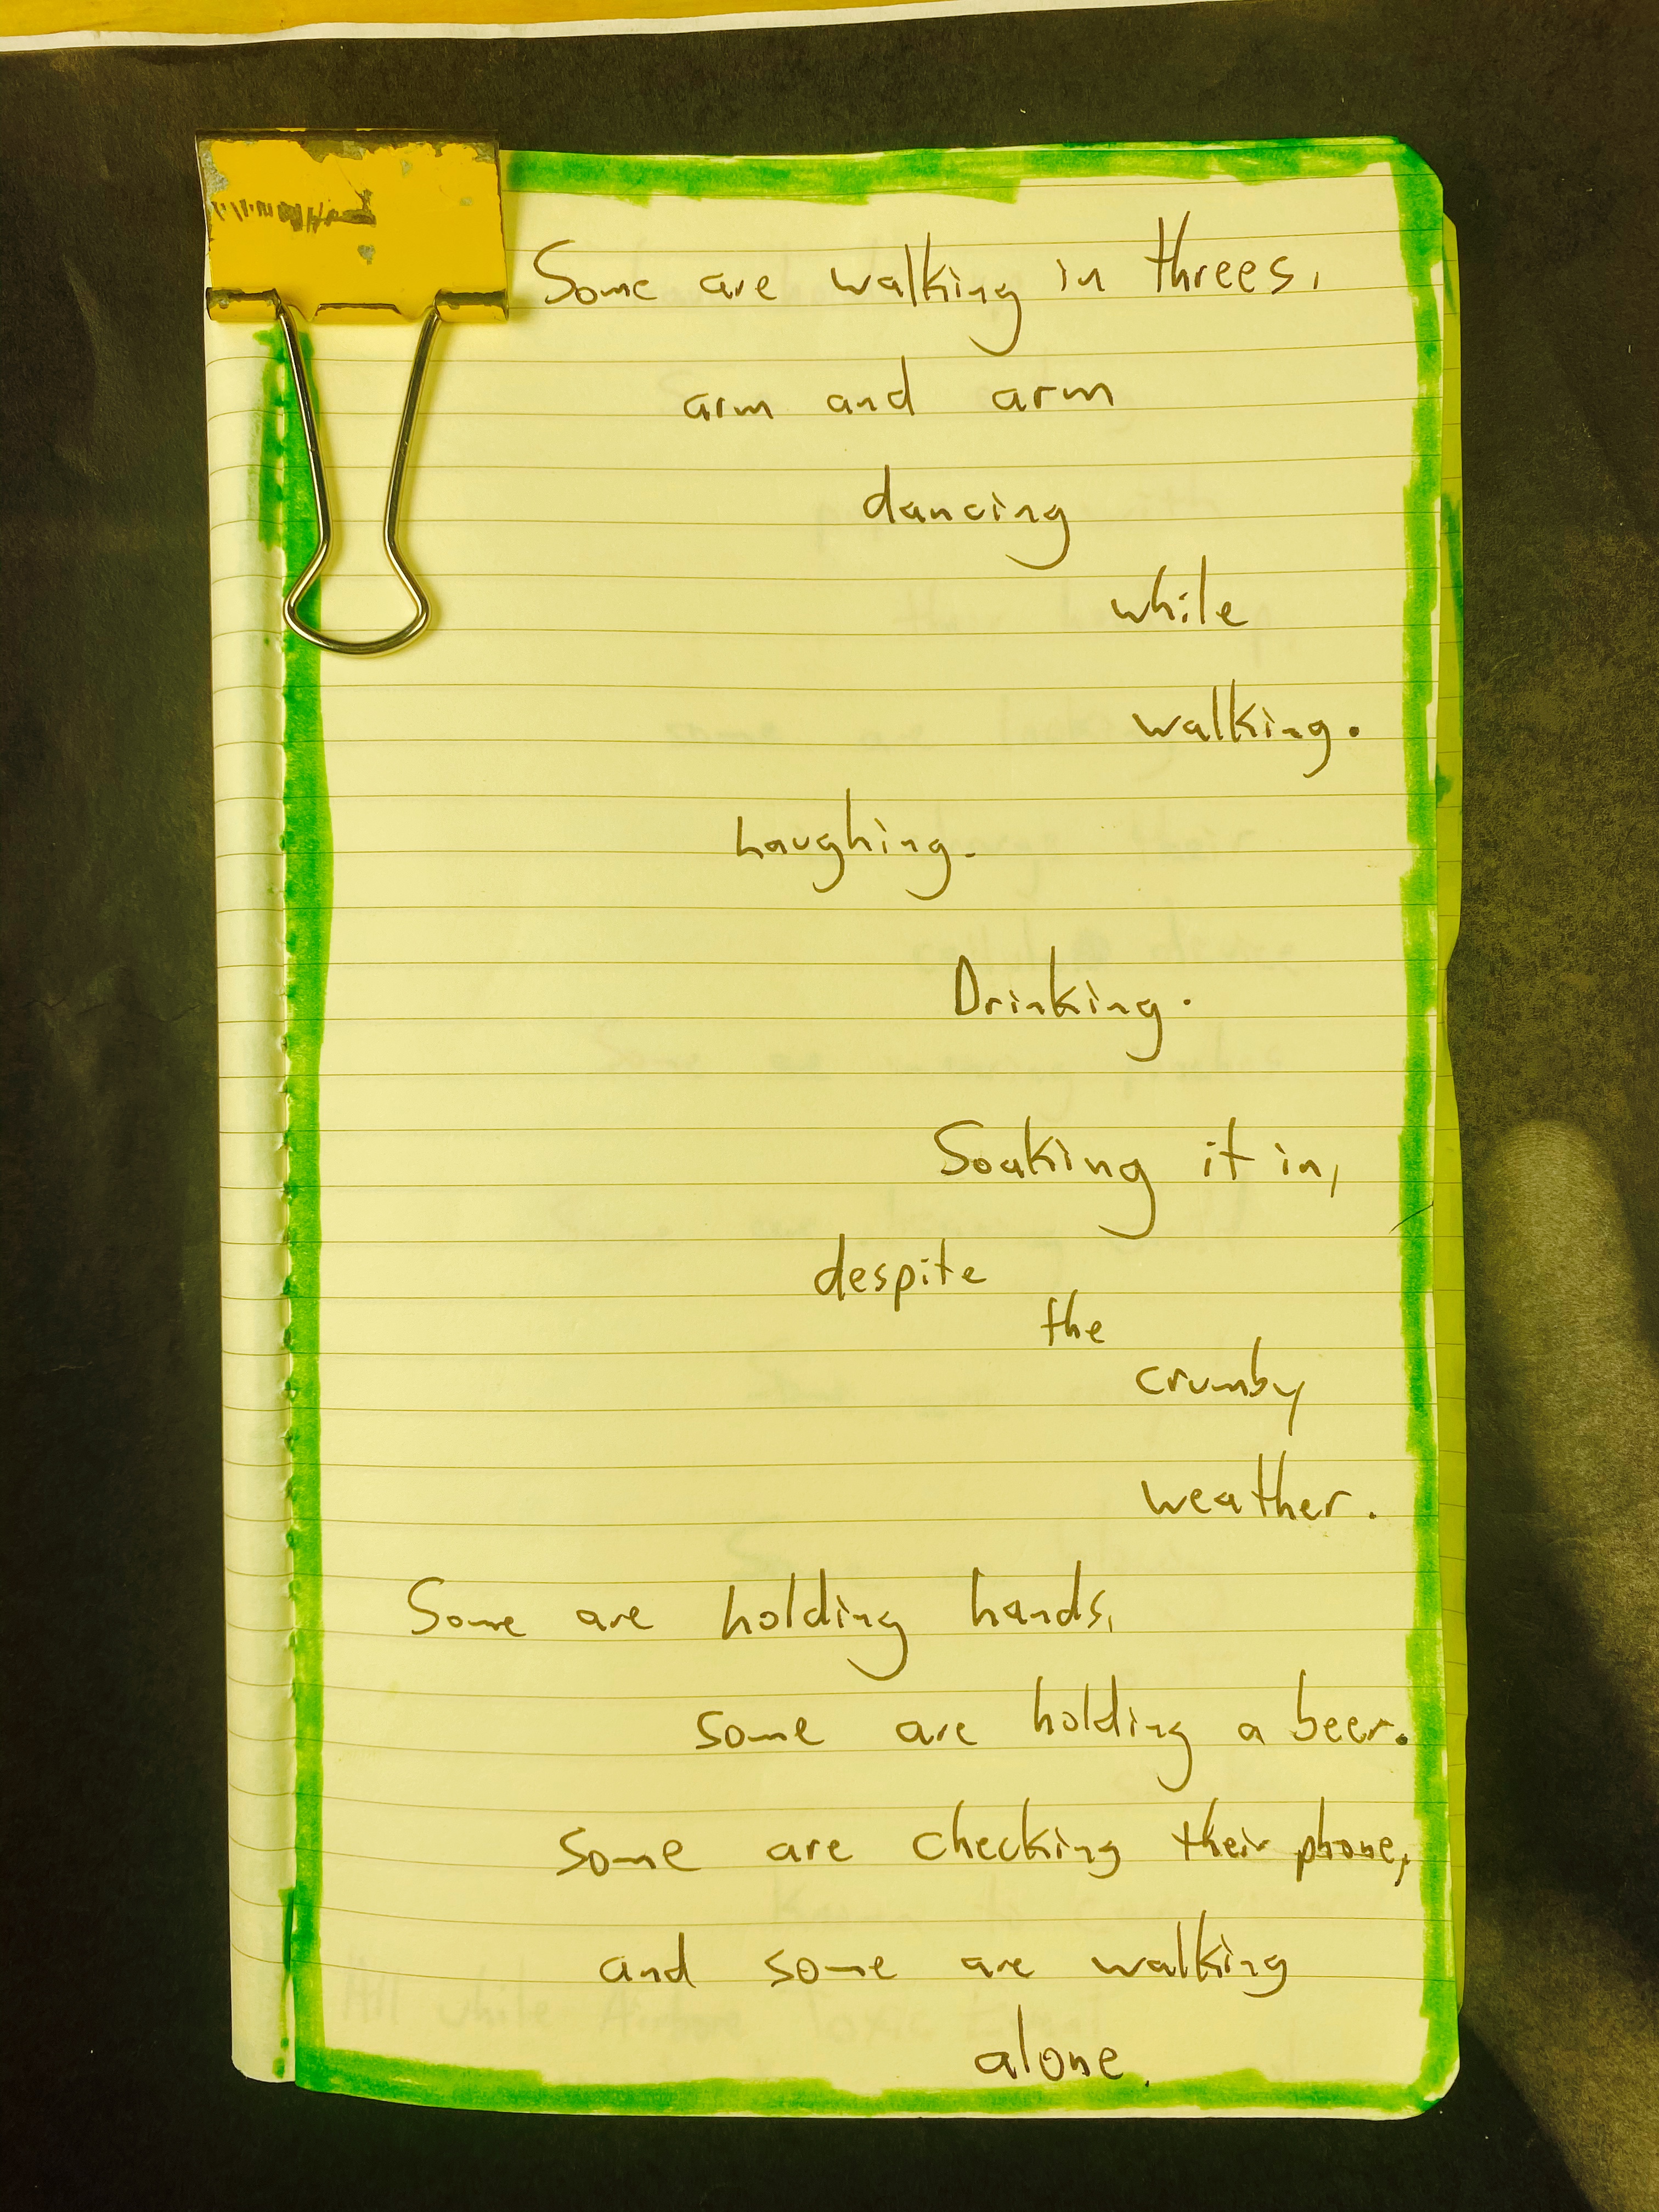 Some are walking in threes,
arm and arm
dancing
while
walking.
Laughing.
Drinking.
Soaking it in,
despite
the
crumby
weather.
Some are holding hands,
some are holding a beer.
Some are checking their phone,
and some are walking
alone.